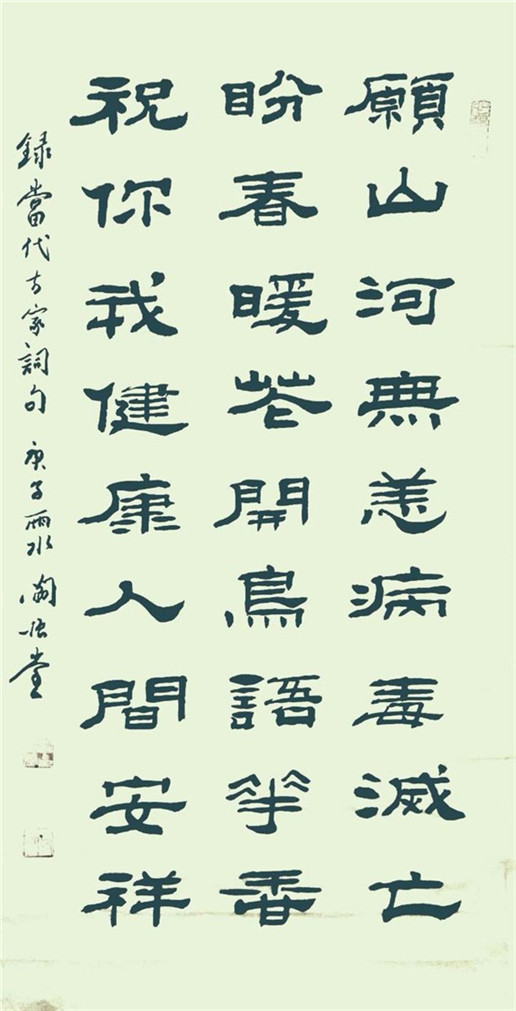 願山河無恙病毒滅亡
盼春暖芲開鳥語華香
祝你我健康人間安祥
録當代方家詞句 庚子雨水